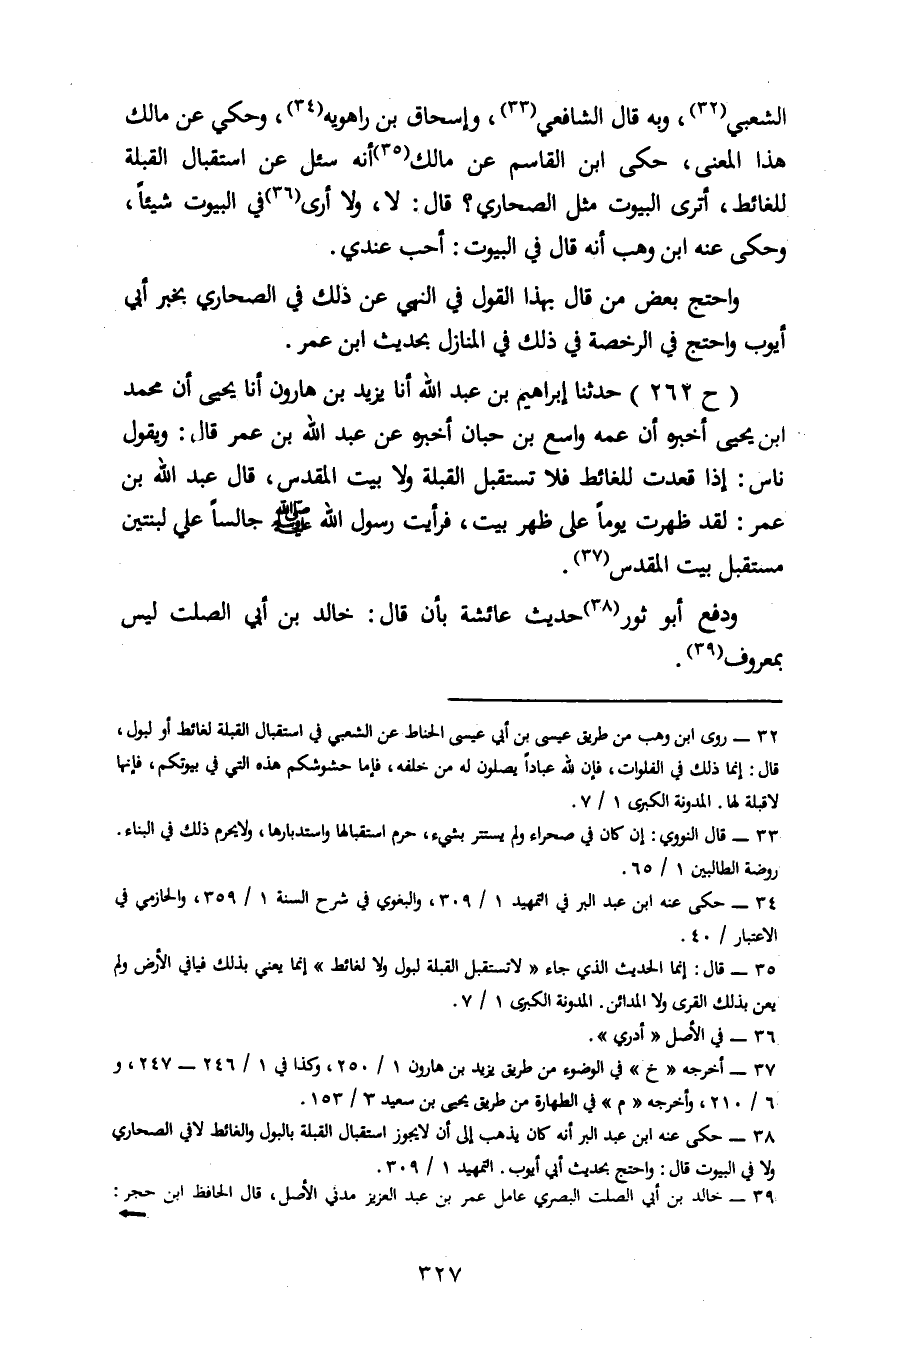 الشعبي(٣٢)، وبه قال الشافعي(٣٣)، وإسحاق بن راهويه(٣٤)، وحكي عن مالك
هذا المعنى، حكى ابن القاسم عن مالك(٣٥)أنه سئل عن استقبال القبلة
للغائط، أترى البيوت مثل الصحاري؟ قال: لا، ولا أرى(٣٦)في البيوت شيئاً،
وحكى عنه ابن وهب أنه قال في البيوت: أحب عندي.
واحتج بعض من قال بهذا القول في النهي عن ذلك في الصحاري بخبر أبي
أيوب واحتج في الرخصة في ذلك في المنازل بحديث ابن عمر.
( ح ٢٦٢ ) حدثنا إبراهيم بن عبد الله أنا يزيد بن هارون أنا يحيى أن محمد
ابن يحيى أخبره أن عمه واسع بن حبان أخبره عن عبد الله بن عمر قال: ويقول
ناس: إذا قعدت للغائط فلا تستقبل القبلة ولا بيت المقدس، قال عبد الله بن
عمر: لقد ظهرت يوماً على ظهر بيت، فرأيت رسول الله ﷺ جالساً علي لبنتين
مستقبل بيت المقدس(٣٧).
ودفع أبو ثور(٣٨)حديث عائشة بأن قال: خالد بن أبي الصلت ليس
بمعروف(٣٩).
٣٢ ــ روى ابن وهب من طريق عيسى بن أبي عيسى الحناط عن الشعبي في استقبال القبلة لغائط أو لبول،
قال: إنما ذلك في الفلوات، فإن لله عباداً يصلون له من خلفه، فإما حشوشكم هذه التي في بيوتكم، فإنها
لاقبلة لها. المدونة الكبرى ١ / ٧.
٣٣ ــ قال النووي: إن كان في صحراء ولم يستتر بشيء، حرم استقبالها واستدبارها، ولايحرم ذلك في البناء.
روضة الطالبين ١ / ٦٥.
٣٤ ــ حكى عنه ابن عبد البر في التمهيد ١ / ٣٠٩، والبغوي في شرح السنة ١ / ٣٥٩، والحازمي في
الاعتبار / ٤٠.
٣٥ ــ قال: إنما الحديث الذي جاء « لاتستقبل القبلة لبول ولا لغائط » إنما يعني بذلك فيافي الأرض ولم
يعن بذلك القرى ولا المدائن. المدونة الكبرى ١ / ٧.
٣٦ ــ في الأصل « أدري ».
٣٧ ــ أخرجه « خ » في الوضوء من طريق يزيد بن هارون ١ / ٢٥٠، وكذا في ١ / ٢٤٦ ــ ٢٤٧، و
٦ / ٢١٠، وأخرجه « م » في الطهارة من طريق يحيى بن سعيد ٣ / ١٥٣.
٣٨ ــ حكى عنه ابن عبد البر أنه كان يذهب إلى أن لايجوز استقبال القبلة بالبول والغائط لافي الصحاري
ولا في البيوت قال: واحتج بحديث أبي أيوب. التمهيد ١ / ٣٠٩.
٣٩ ــ خالد بن أبي الصلت البصري عامل عمر بن عبد العزيز مدني الأصل، قال الحافظ ابن حجر:
٣٢٧